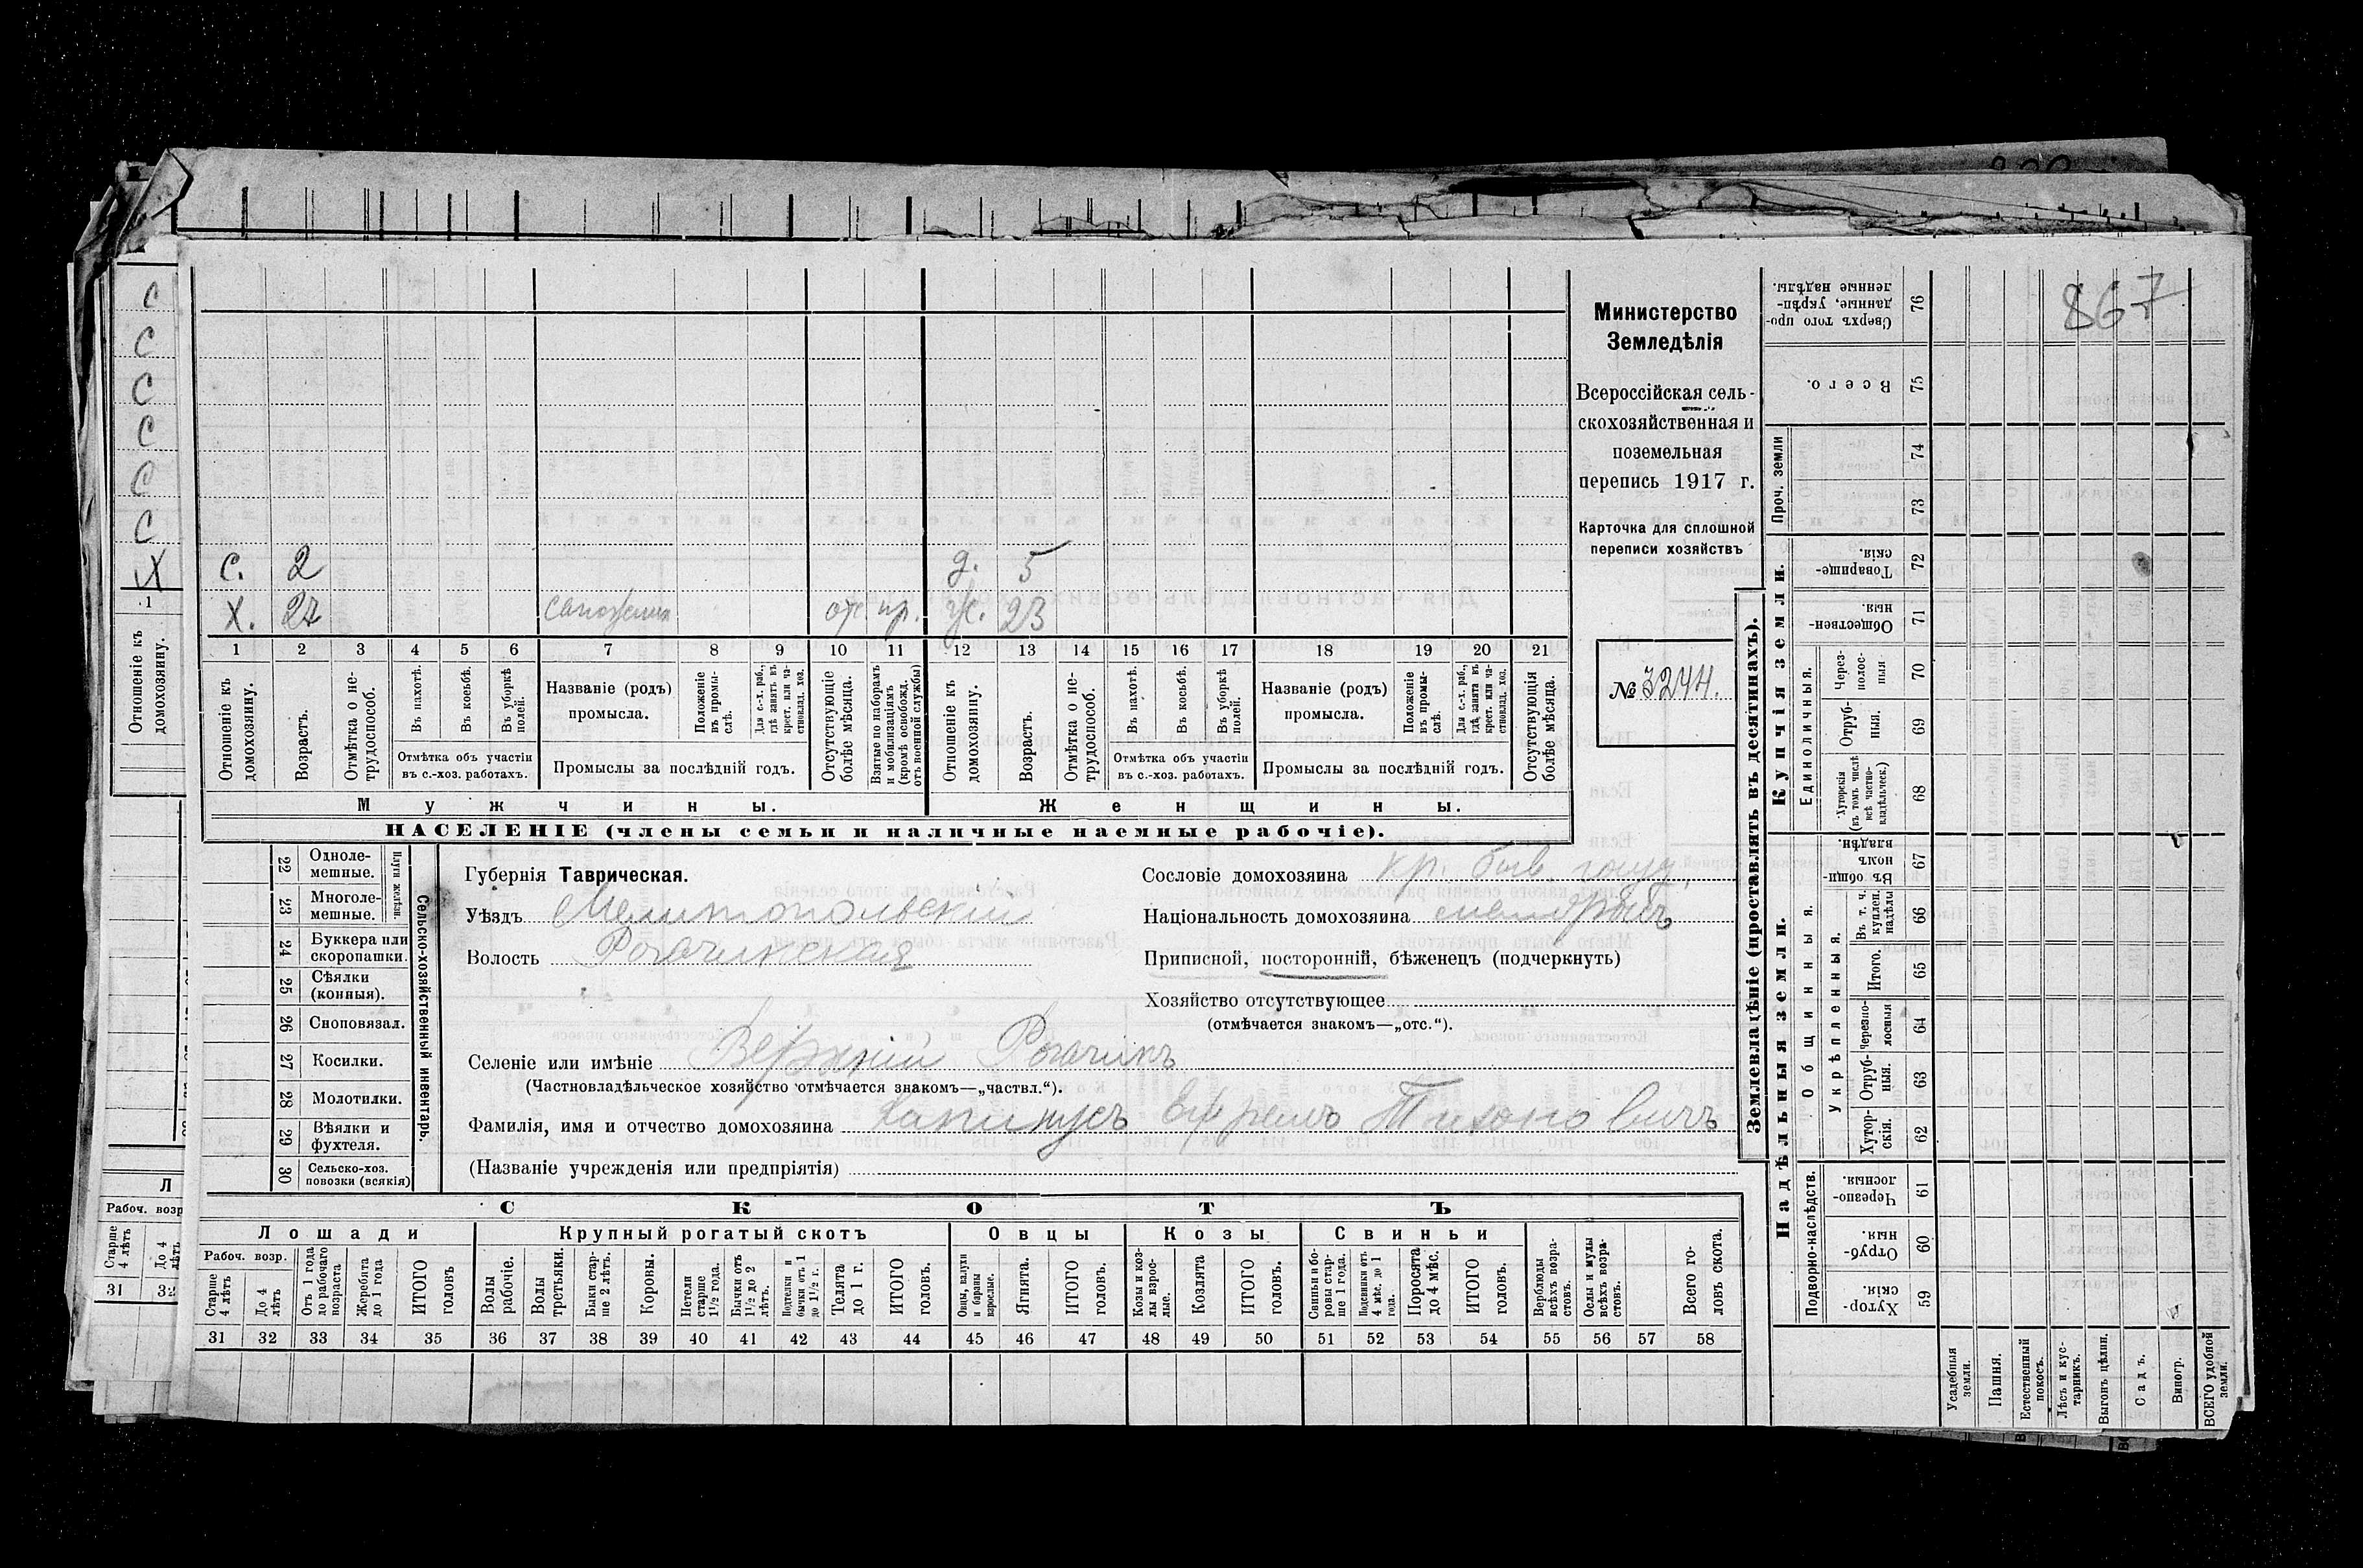 867
Министерство
Земледѣлія
Всероссійская сель-
скохозяйственная и
поземельная
перепись 1917 г.
Карточка для сплошной
переписи хозяйствъ
№ 3244.
С
С
С
С
С
С
Х
1
Отношеніе къ
домохозяину.
с. 2 д. 5
х. 27 отс. пр. ж. 23
1 2 3 4 5 6 7 8 9 10 11 12 13 14 15 16 17 18 19 20 21
Отношеніе къ
домохозяину.
Возрастъ.
Отмѣтка о не-
трудоспособ.
Въ пахотѣ.
Въ косьбѣ.
Въ уборкѣ
полей.
Отмѣтка объ участіи
въ с.-хоз. работахъ.
Названіе (родъ)
промысла.
Положеніе
въ промы-
слѣ.
Для с.-х. раб.,
гдѣ занятъ въ
крест. или ча-
стновлад. хоз.
Промыслы за послѣдній годъ.
Отсутствующіе
болѣе мѣсяца.
Взятые по наборамъ
и мобилизаціямъ
(кромѣ освобожд.
отъ военной службы)
Отношеніе къ
домохозяину.
Возрастъ.
Отмѣтка о не-
трудоспособ.
Въ пахотѣ.
Въ косьбѣ.
Въ уборкѣ
полей.
Отмѣтка объ участіи
въ с.-хоз. работахъ.
Названіе (родъ)
промысла.
Положеніе
въ промы-
слѣ.
Для с.-х. раб.,
гдѣ занята въ
крест. или ча-
стновлад. хоз.
Промыслы за послѣдній годъ.
Отсутствующія
болѣе мѣсяца.
Мужчины. Женщины.
НАСЕЛЕНІЕ (члены семьи и наличные наемные рабочіе).
22 Одноле-
мешные.
23 Многоле-
мешные.
Плуги желѣзн.
24 Буккера или
скоропашки.
25 Сѣялки
(конныя).
26 Сноповязал.
27 Косилки.
28 Молотилки.
29 Вѣялки и
фухтеля.
30 Сельско-хоз.
повозки (всякія)
Сельско-хозяйственный инвентарь.
Губернія Таврическая.
Уѣздъ Мелитопольскій
Волость Рогачикская
Сословіе домохозяина кр. быв. госуд.
Національность домохозяина
Приписной, посторонній, бѣженецъ (подчеркнуть)
Хозяйство отсутствующее
(отмѣчается знакомъ—„отс.“).
Селеніе или имѣніе Верхній Рогачикъ
(Частновладѣльческое хозяйство отмѣчается знакомъ—„частвл.“).
Фамилія, имя и отчество домохозяина Капинусъ Ефремъ Тихоновичъ
(Названіе учрежденія или предпріятія)
СКОТЪ
Лошади Крупный рогатый скотъ Овцы Козы Свиньи
Рабоч. возр.
Старше
4 лѣтъ
До 4
лѣтъ
Отъ 1 года
до рабочаго
возраста
Жеребята
до 1 года
ИТОГО
головъ
Волы
рабочіе.
Волы
третьяки.
Быки стар-
ше 2 лѣтъ.
Коровы.
Нетели
старше
1½ года.
Бычки отъ
1½ до 2
лѣтъ.
Подтелки и
бычки отъ 1
до 1½ г.
Телята
до 1 г.
ИТОГО
головъ.
Овцы, валухи
и бараны
взрослые.
Ягнята.
ИТОГО
головъ.
Козы и коз-
лы взрос-
лые.
Козлята
ИТОГО
головъ.
Свиньи и бо-
ровы стар-
ше 1 года.
Подсвинки отъ
4 мѣс. до 1
года.
Поросята
до 4 мѣс.
ИТОГО
головъ.
Верблюды
всѣхъ возра-
стовъ.
Ослы и мулы
всѣхъ возра-
стовъ.
Всего го-
ловъ скота.
31 32 33 34 35 36 37 38 39 40 41 42 43 44 45 46 47 48 49 50 51 52 53 54 55 56 57 58
Л
Рабоч. возр
Старше
4 лѣтъ
До 4
лѣтъ
31 32
Землевладѣніе (проставлять въ десятинахъ).
Надѣльныя земли. Купчія земли. Проч. земли
Подворно-наслѣдств.
Общинныя.
Укрѣпленныя.
Единоличныя.
76 Сверхъ того про-
данные, укрѣп-
ленные надѣлы.
75 Всего.
74
73
72 Товарище-
скія.
71 Обществен-
ныя.
70 Через-
полос-
ныя
69 Отруб-
ныя.
68 Хуторскія
(въ томъ числѣ
всѣ частно-
владѣльческ.)
67 Въ общин-
номъ
владѣн.
66 Въ т. ч.
куплен.
надѣлы
65 Итого.
64 Черезпо-
лосныя
63 Отруб-
ныя.
62 Хутор-
скія.
61 Черезпо-
лосныя.
60 Отруб-
ныя.
59 Хутор-
скія.
Усадебныя
земли.
Пашня.
Естественный
покосъ.
Лѣсъ и кус-
тарникъ.
Выгонъ цѣлин.
Садъ.
Виногр.
ВСЕГО удобной
земли.